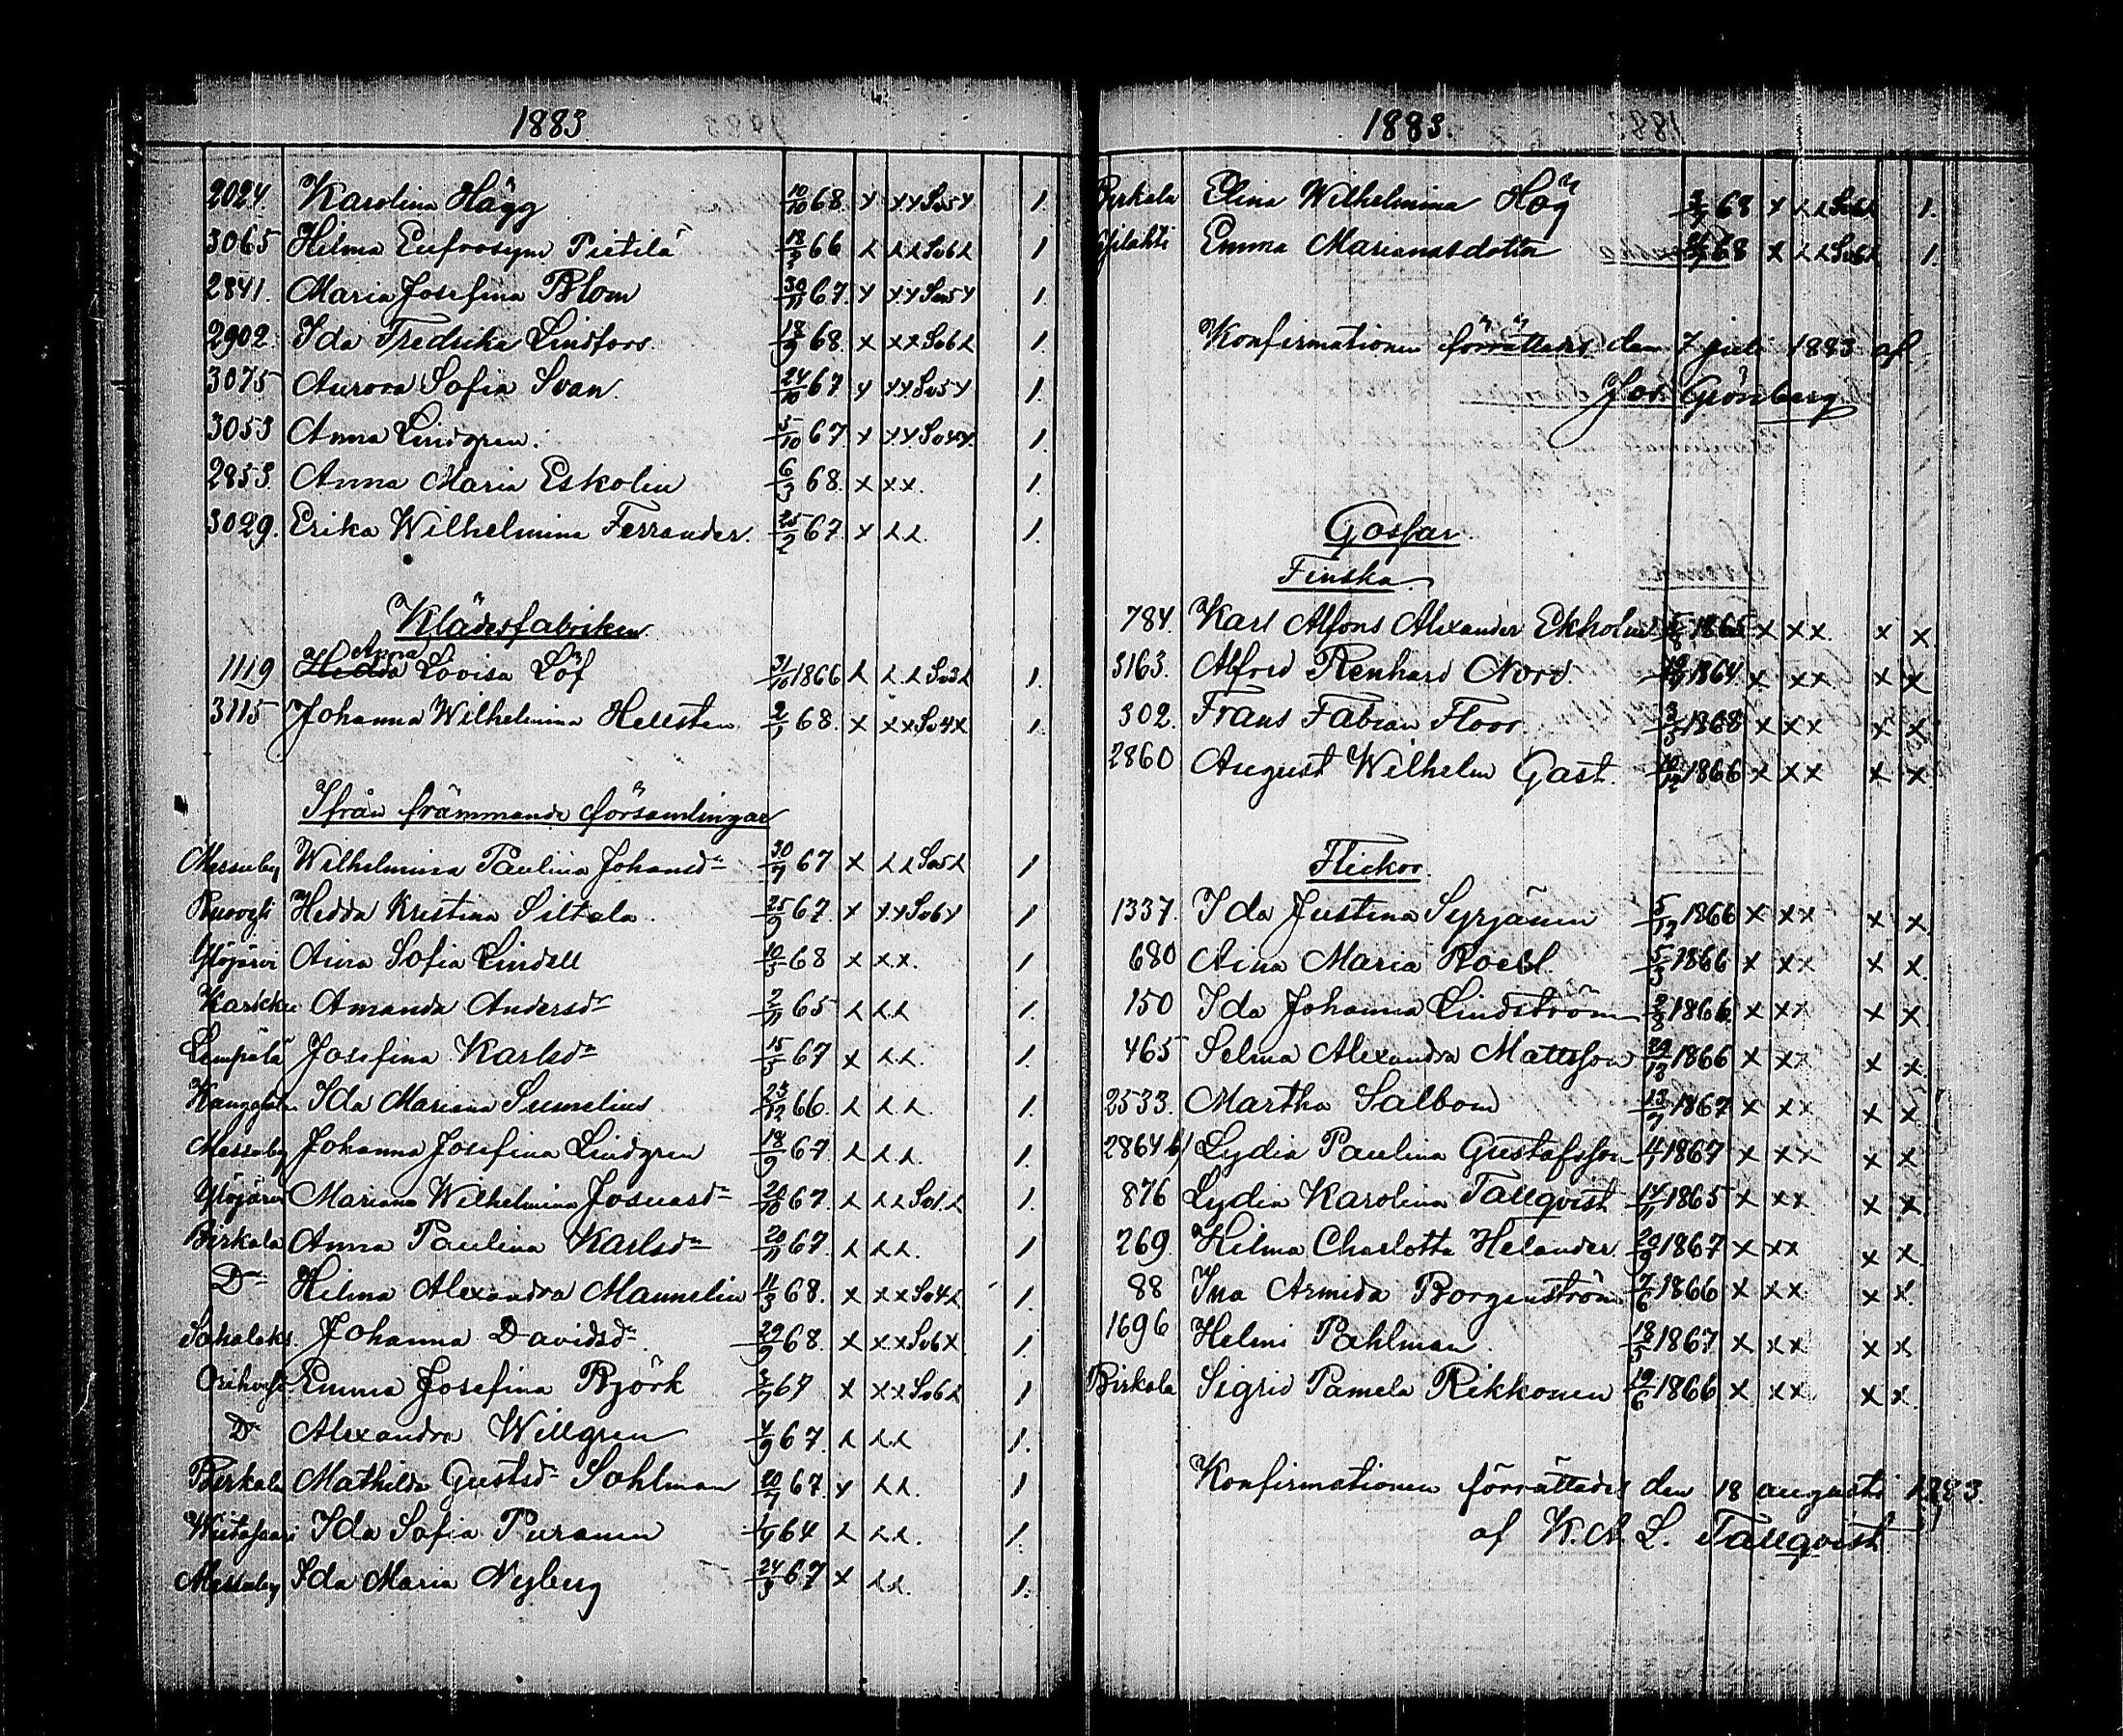 1883
2024. Karolina Hägg 10/10 68. x xx So54 1.
3065 Helma Eufrosyne Pietilä 18/2 66 1
2841. Maria Josefina Blom 30/11 67. 1.
2902. Ida Fredrika Lindfors. 18/9 68. x xx So62 1.
3075 Aurora Sofia Svan. 24/10 67 1.
3053 Anna Lindgren. 5/10 67 1.
2853. Anna Maria Eskolin 6/3 68. x xx. 1.
3029. Erika Wilhelmina Ferrander. 25/2 67. x 1.
Klädesfabriken.
Anna
1119 Hedda Lovisa Löf 31/10 1866 1.
3115 Johanna Wilhelmina Hellsten 2/1 68. x xx So4x 1.
Ifrån främmande församlingar
Messuby Wilhelmina Paulina Johansdr 30/7 67 x 1
Ruovesi Hedda Kristina Siltala. 25/9 67. x 1
Ylöjärvi Aina Sofia Lindell 10/3 68 x xx. 1
Karkku Amanda Andersdr 2/11 65 1.
Lempälä Josefina Karlsdr 15/5 67 x 1.
Kangasala Ida Mariana Sumelius 23/12 66. 1.
Messuby Johanna Josefina Lindgren 18/9 67. 1.
Ylöjärvi Mariana Wilhelmina Josuasdr 67. 1.
Birkala Anna Paulina Karlsdr 20/11 67. 1
Do Helma Alexandra Mannelin 11/3 68. x xx 1.
Sahalaks. Johanna Davidsdr. 29/9 68. x xx So6x 1.
Orihvesi Emma Josefina Björk 67 x xx 1
Do Alexandra Willgren 4/9 67. 1.
Birkala Mathilda Gustsdr Sohlman 20/7 67. 1
Ida Sofia Puranen 64 1.
Messuby Ida Maria Nyberg 24/3 67 x 1.
1883.
Birkala Elina Wilhelmina Hög 68 x 1.
Emma Marianasdotter 68 x 1.
Konfirmationen förrättades den 7 juli 1883 af
Joh. Grönberg
Gossar.
Finska
784. Karl Alfons Alexander Ekholm 1865 x xx. x x.
3163. Alfred Renhard Nord. 1864. x xx x x
302. Frans Fabian Floor. 3/3 1868 x xx x x.
2860 August Wilhelm Gast. 10/12 1866 x xx x x.
Flickor.
1337. Ida Justina Syrjänen 5/12 1866 x xx x x.
680 Aina Maria Roesl. 5/3 1866 x xx x x.
150 Ida Johanna Lindström 2/8 1866. x xx x x.
465 Selma Alexandra Mattsson 29/12 1866 x xx x x.
2533. Martha Salbom 13/7 1867 x xx x x.
2864 b) Lydia Paulina Gustafsson 1867 x xx x x.
876 Lydia Karolina Tallqvist 14/11 1865 x xx x x.
269. Hilma Charlotta Helander. 20/9 1867 x xx x x.
88 Ina Armida Borgenström 7/6 1866 x xx. x x.
1696 Helmi Pahlman. 18/5 1867 x xx. x x
Birkala Sigrid Pamela Rikkonen 19/6 1866 x xx. x x.
Konfirmationen förrättades den 18 augusti 1883.
af K. A. L. Tallqvist.